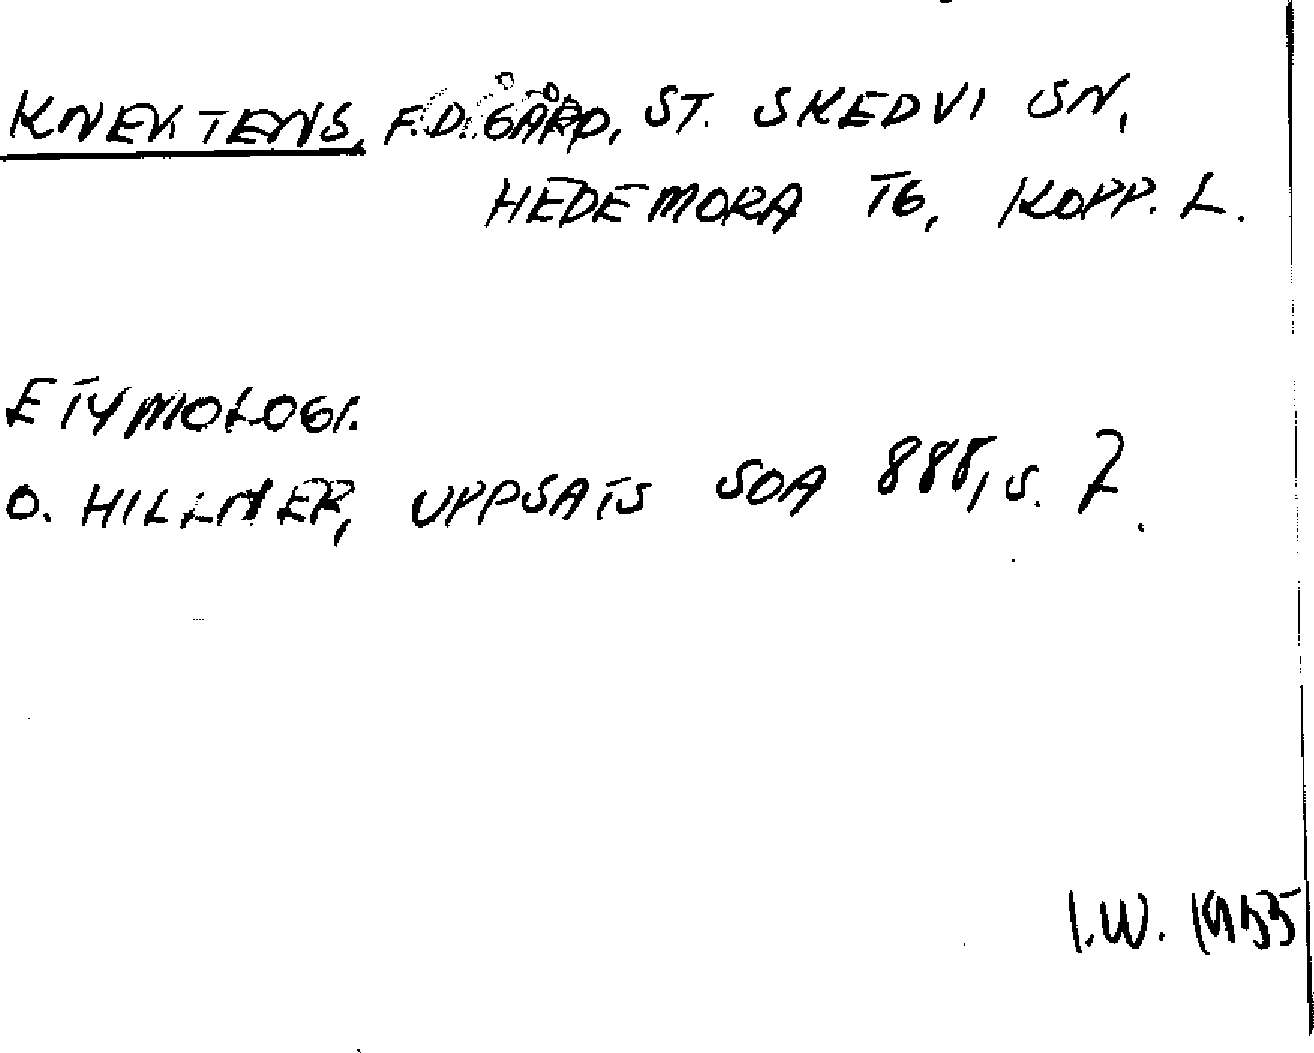 KNEKTENS, F.D. GÅRD, ST. SKEDVI SN,
HEDEMORA TG, KOPP. L.
ETYMOLOGI.
O. HILLNER, UPPSATS SOA 888, S. 7.
I.W. 1935